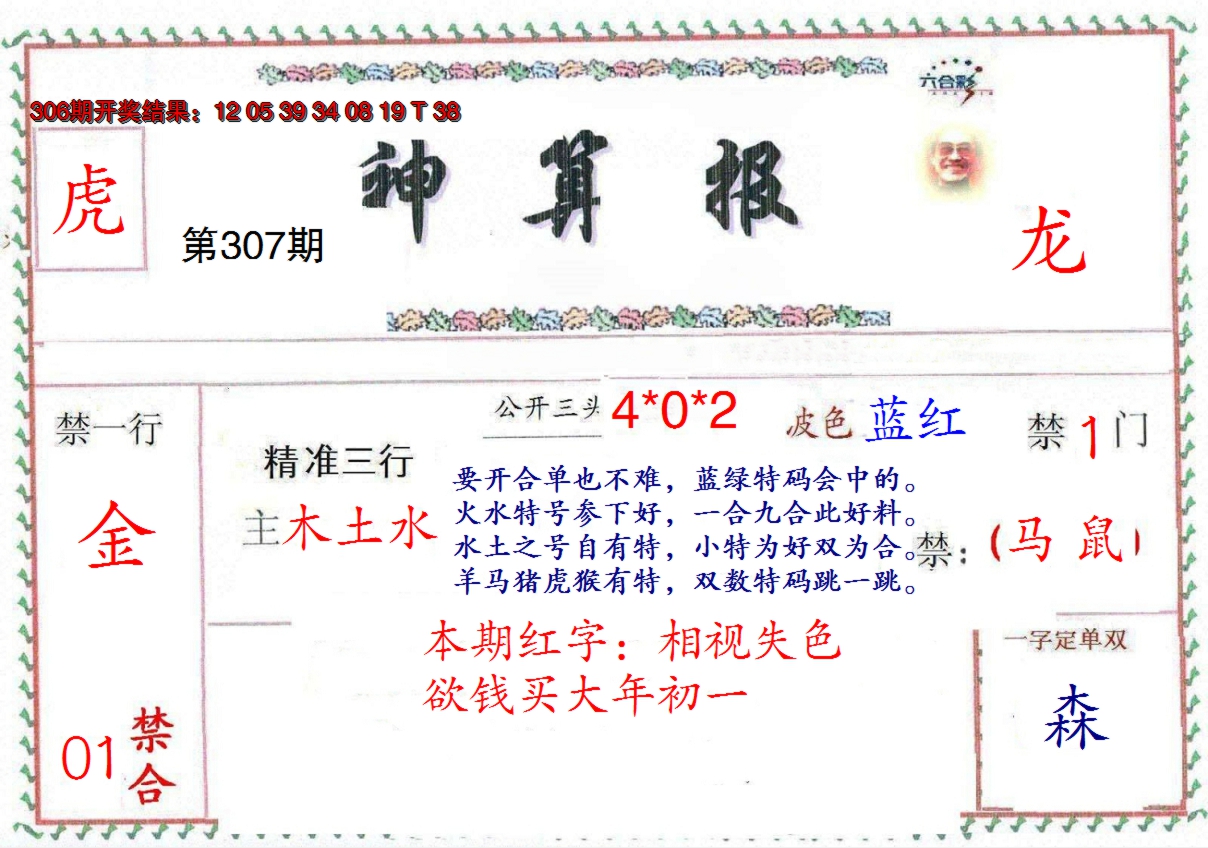 六合彩
306期开奖结果：12 05 39 34 08 19 T 38
虎
神算报
第307期
龙
公开三头 4*0*2
波色 蓝红
禁一行
禁1门
精准三行
主木土水
金
要开合单也不难，蓝绿特码会中的。
火水特号参下好，一合九合此好料。
水土之号自有特，小特为好双为合。
羊马猪虎猴有特，双数特码跳一跳。
禁：（马 鼠）
本期红字：相视失色
欲钱买大年初一
一字定单双
森
01禁合